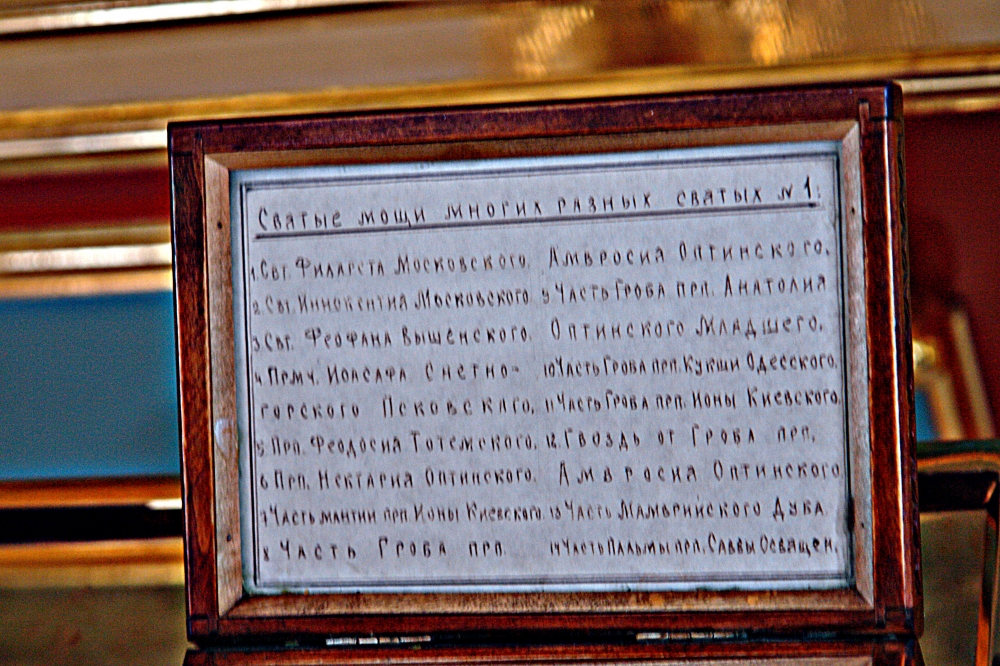 Святые мощи многих разных святых №1:
1. Свт. Филарета Московского.
2. Свт. Иннокентия Московского.
3. Свт. Феофана Вышенского.
4. Прмч. Иоасафа Снетно-
горского Псковскаго.
5. Прп. Феодосия Тотемского.
6 Прп. Нектария Оптинского.
7 Часть мантии прп. Ионы Киевского.
8 Часть Гроба прп.
Амвросия Оптинского.
9 Часть Гроба прп. Анатолия
Оптинского Младшего.
10 Часть Гроба прп. Кукши Одесского.
11 Часть Гроба прп. Ионы Киевского.
12. Гвоздь от Гроба прп.
Амвросия Оптинского
13 Часть Мамврийского Дуба.
14 Часть Пальмы прп. Саввы Освящен.